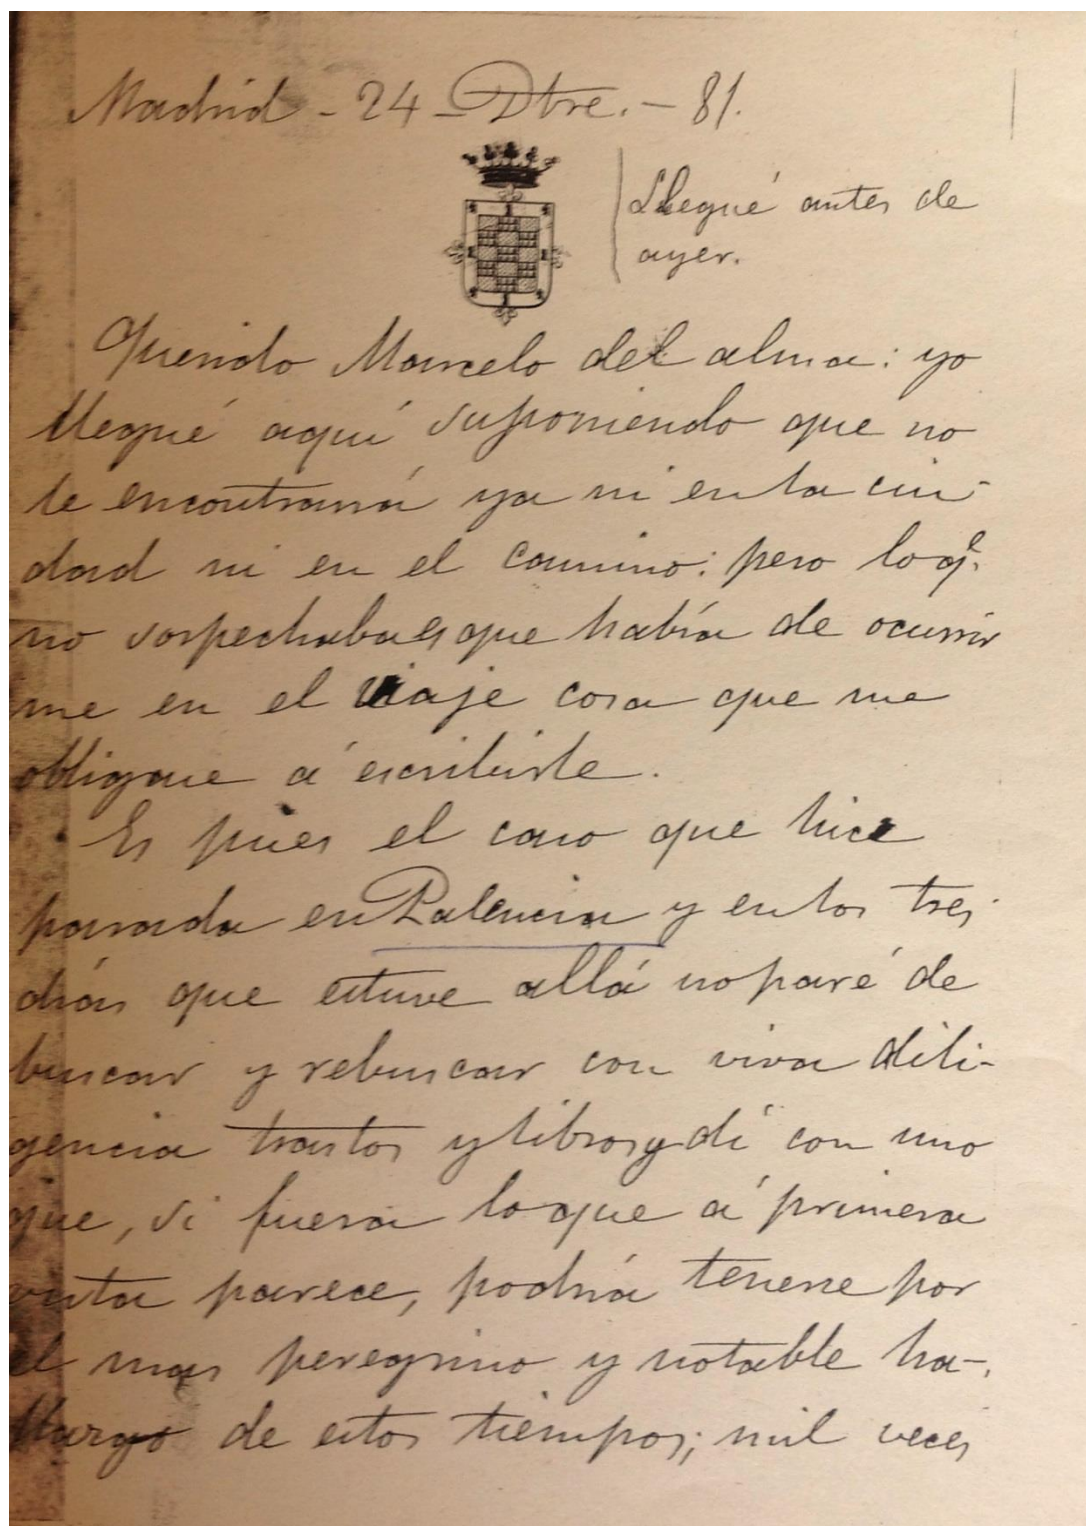 Madrid - 24 - Dtre. - 81.
Llegué antes de
ayer.
Querido Marcelo del alma: yo
llegué aquí suponiendo que no
te encontraría ya ni en la ciu-
dad ni en el camino: pero lo q.e
no sospechaba es que había de ocurrir
me en el viaje cosa que me
obligase á escribirte.
Es pues el caso que hice
parada en Palencia y en los tres
días que estuve allá no paré de
buscar y rebuscar con viva dili-
gencia trastos y libros y dí con uno
que, si fuera lo que á primera
vista parece, podría tenerse por
el mas peregrino y notable ha-
llazgo de estos tiempos; mil veces